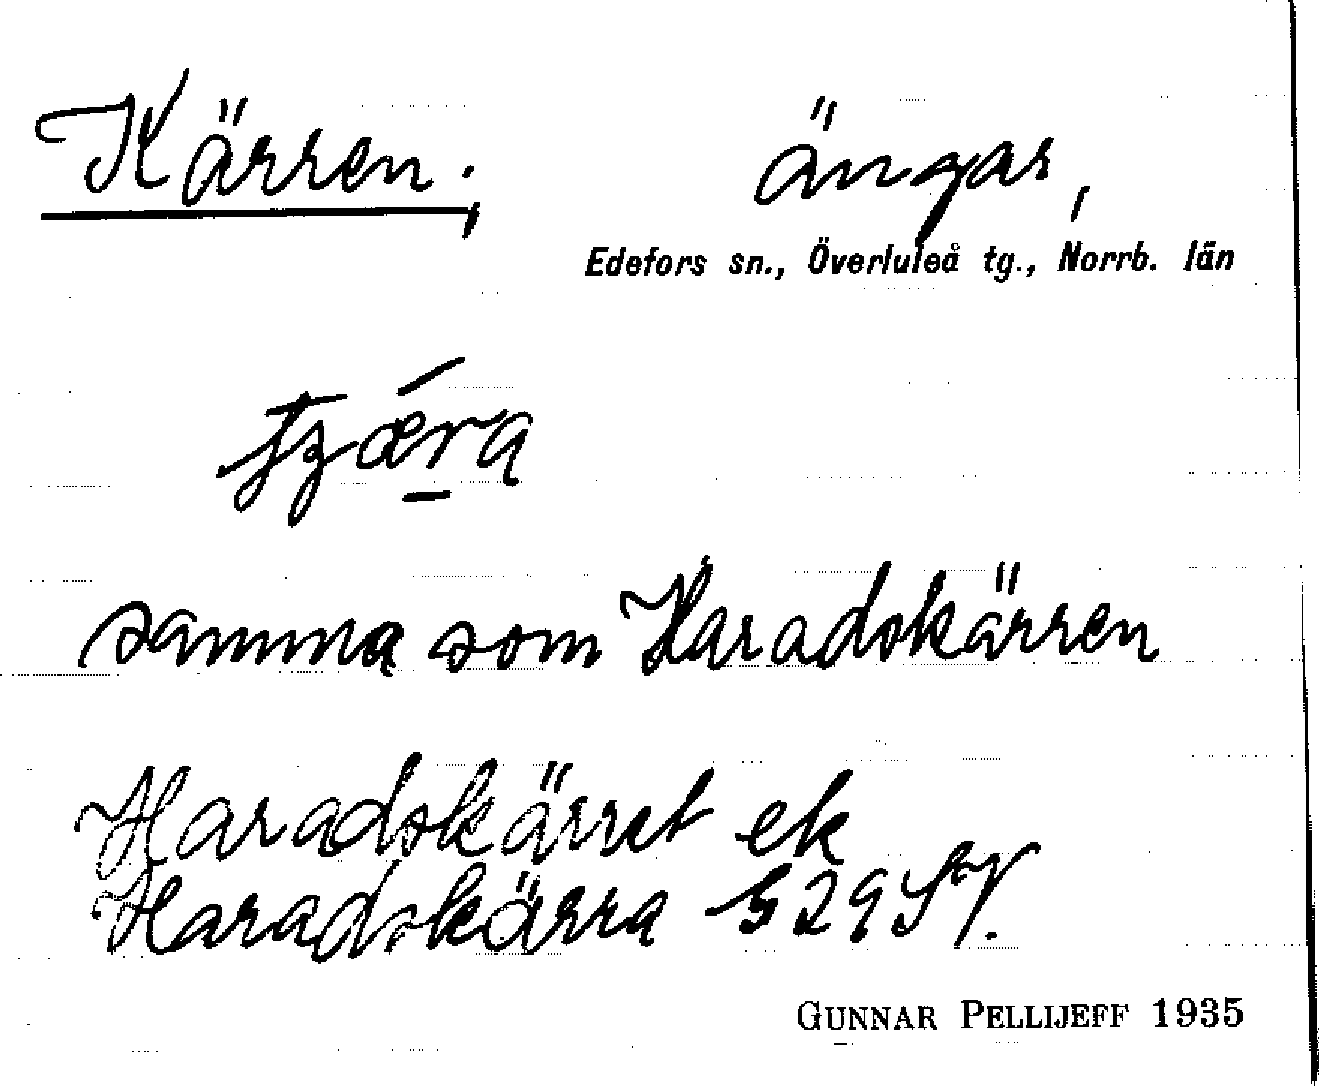 Kärren; ängar,
Edefors sn., Överluleå tg., Norrb. län
samma som Haradskärren
Haradskärret ek
Haradskärra 529 SV.
GUNNAR PELLIJEFF 1935